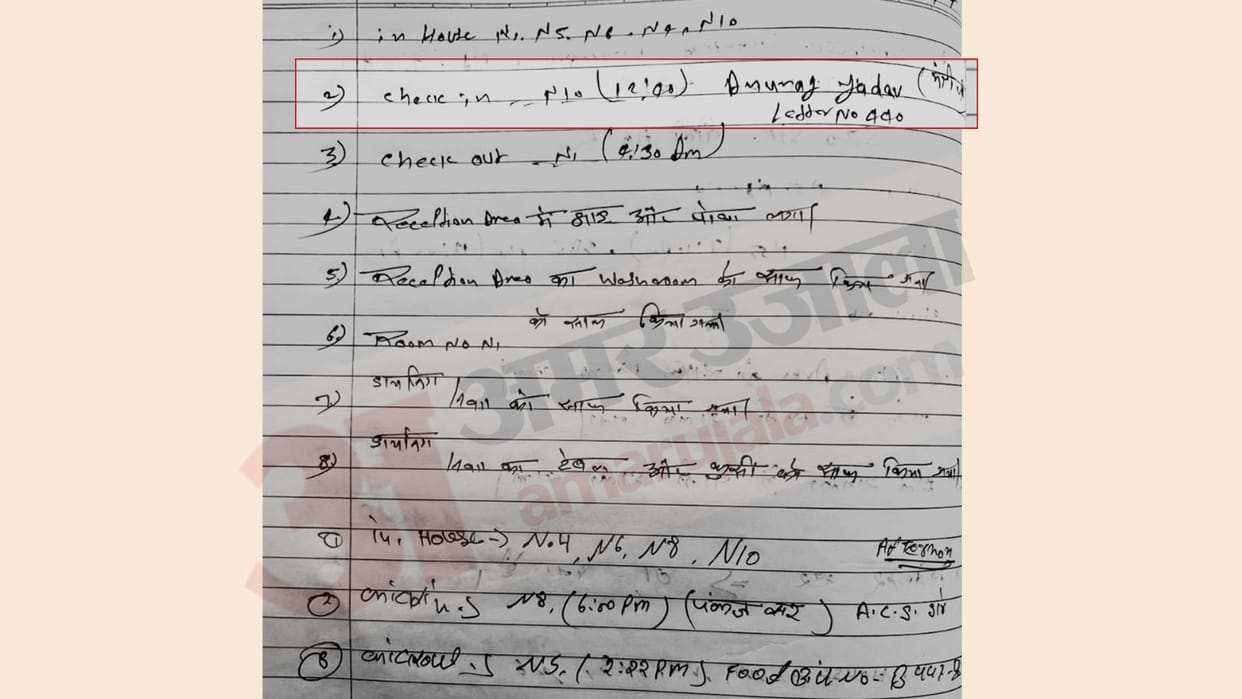 1) in House N1, N5, N6, N8, N10
2) check in - N10 (12:40) Anurag Yadav
Ledder No 440
3) check out - N1 (9:30 Am)
4) Reception Area में झाडू और पोछा लगा
5) Reception Area का Washroom को साफ किया गया
को साफ किया गया
6) Room No N1
डायनिंग
7) एरिया को साफ किया गया
डायनिंग
8) एरिया का टेबल और कुर्सी को साफ किया गया
अमर उजाला
amarujala.com
① In House → N.4, N6, N8, N10 Afternoon
② N8, (6:00 Pm) (पंकज सर) A.C.S.
③ N5, (2:22 PM). Food Bill No-